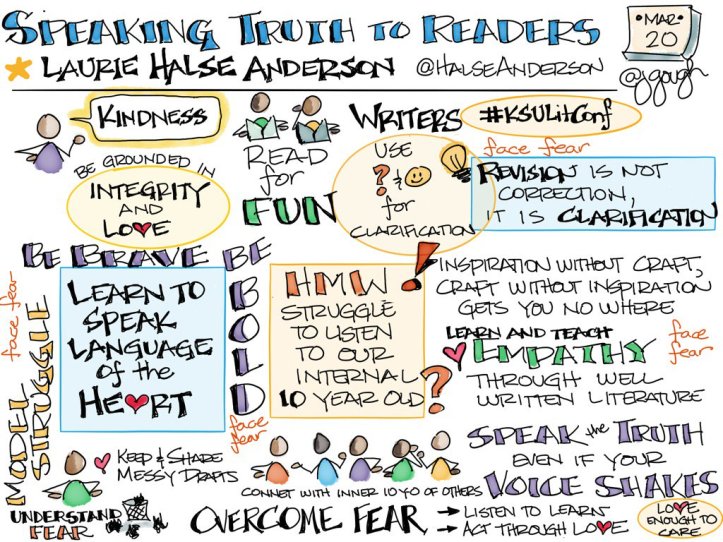 SPEAKING TRUTH TO READERS
MAR
20
LAURIE HALSE ANDERSON @HALSEANDERSON
@jgough
KINDNESS
BE GROUNDED IN
INTEGRITY
AND
LOVE
READ
for
FUN
WRITERS #KSULitConf
USE
? &
for
CLARIFICATION
face fear
REVISION IS NOT
CORRECTION,
IT IS CLARIFICATION
BE BRAVE BE
BOLD
face fear
MODEL
STRUGGLE
face fear
LEARN TO
SPEAK
LANGUAGE
of the
HEART
HMW!
STRUGGLE
TO LISTEN
TO OUR
INTERNAL
10 YEAR OLD?
INSPIRATION WITHOUT CRAFT,
CRAFT WITHOUT INSPIRATION
GETS YOU NO WHERE
LEARN AND TEACH
EMPATHY
face
fear
THROUGH WELL
WRITTEN LITERATURE
SPEAK the TRUTH
EVEN IF YOUR
VOICE SHAKES
KEEP & SHARE
MESSY DRAFTS
UNDERSTAND
FEAR
CONNET WITH INNER 10 YO OF OTHERS
OVERCOME FEAR → LISTEN TO LEARN
→ ACT THROUGH LOVE
LOVE
ENOUGH TO
CARE